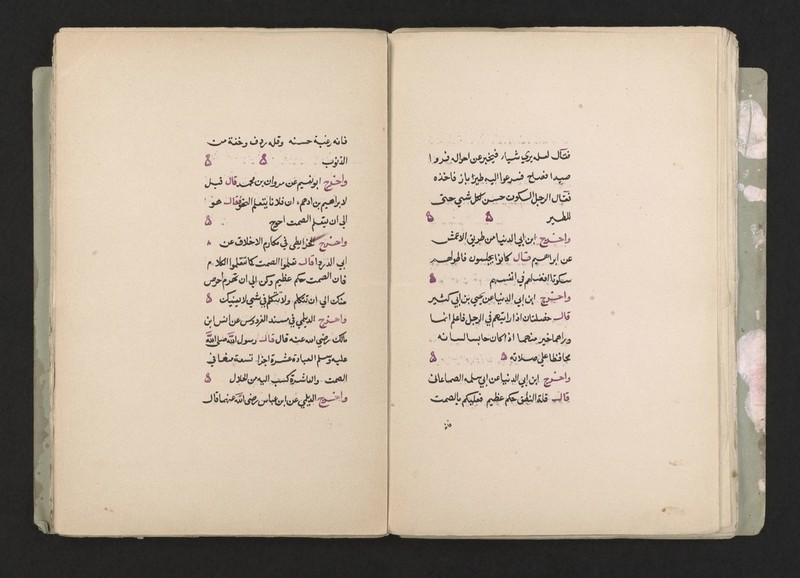 فقال لعله يرى شياء فيخبر عن احواله فروا
صيدا فصاح فسرعوا اليه طيرا باز فاخذه
فقال الرجل السكوت حسن كل شي حتى
للطير
واخرج ابن ابي الدنيا من طريق الاعمش
عن ابراهيم قال كانوا يجلسون فاطولهم
سكوتا افضلهم في انفسهم
واخرج ابن ابي الدنيا عن يحيى بن ابي كثير
قال خصلتان اذا رايتهم في الرجل فاعلم انما
وراهما خير منهما اذا كان حابسا لسانه
محافظا على صلاته
واخرج ابن ابي الدنيا عن ابي سلمه الصماعاني
قال قلة النطق حكم عظيم فعليكم بالصمت
فانه رغبة حسنه وقله ردف وخفة من
الذنوب
واخرج ابو نعيم عن مروان بن محمد قال قيل
لابراهيم بن ادهم ان فلانا يتعلم النحو فقال هو
الى ان يتعلم الصمت احوج
واخرج الخرايطى في مكارم الاخلاق عن
ابي الدردا قال تعلموا الصمت كما تتعلموا الكلام
فان الصمت حكم عظيم وكن الى ان تحرم احرص
منك الى ان تتكلم ولا تتكلم في شي لا يعنيك
واخرج الديلمي في مسند الفردوس عن انس ابن
مالك رضي الله عنه قال قال رسول الله صلى الله
عليه وسلم العبادة عشرة اجزا تسعة منها في
الصمت والعاشرة كسب اليد من الحلال
واخرج الديلمي عن ابن عباس رضي الله عنهما قال